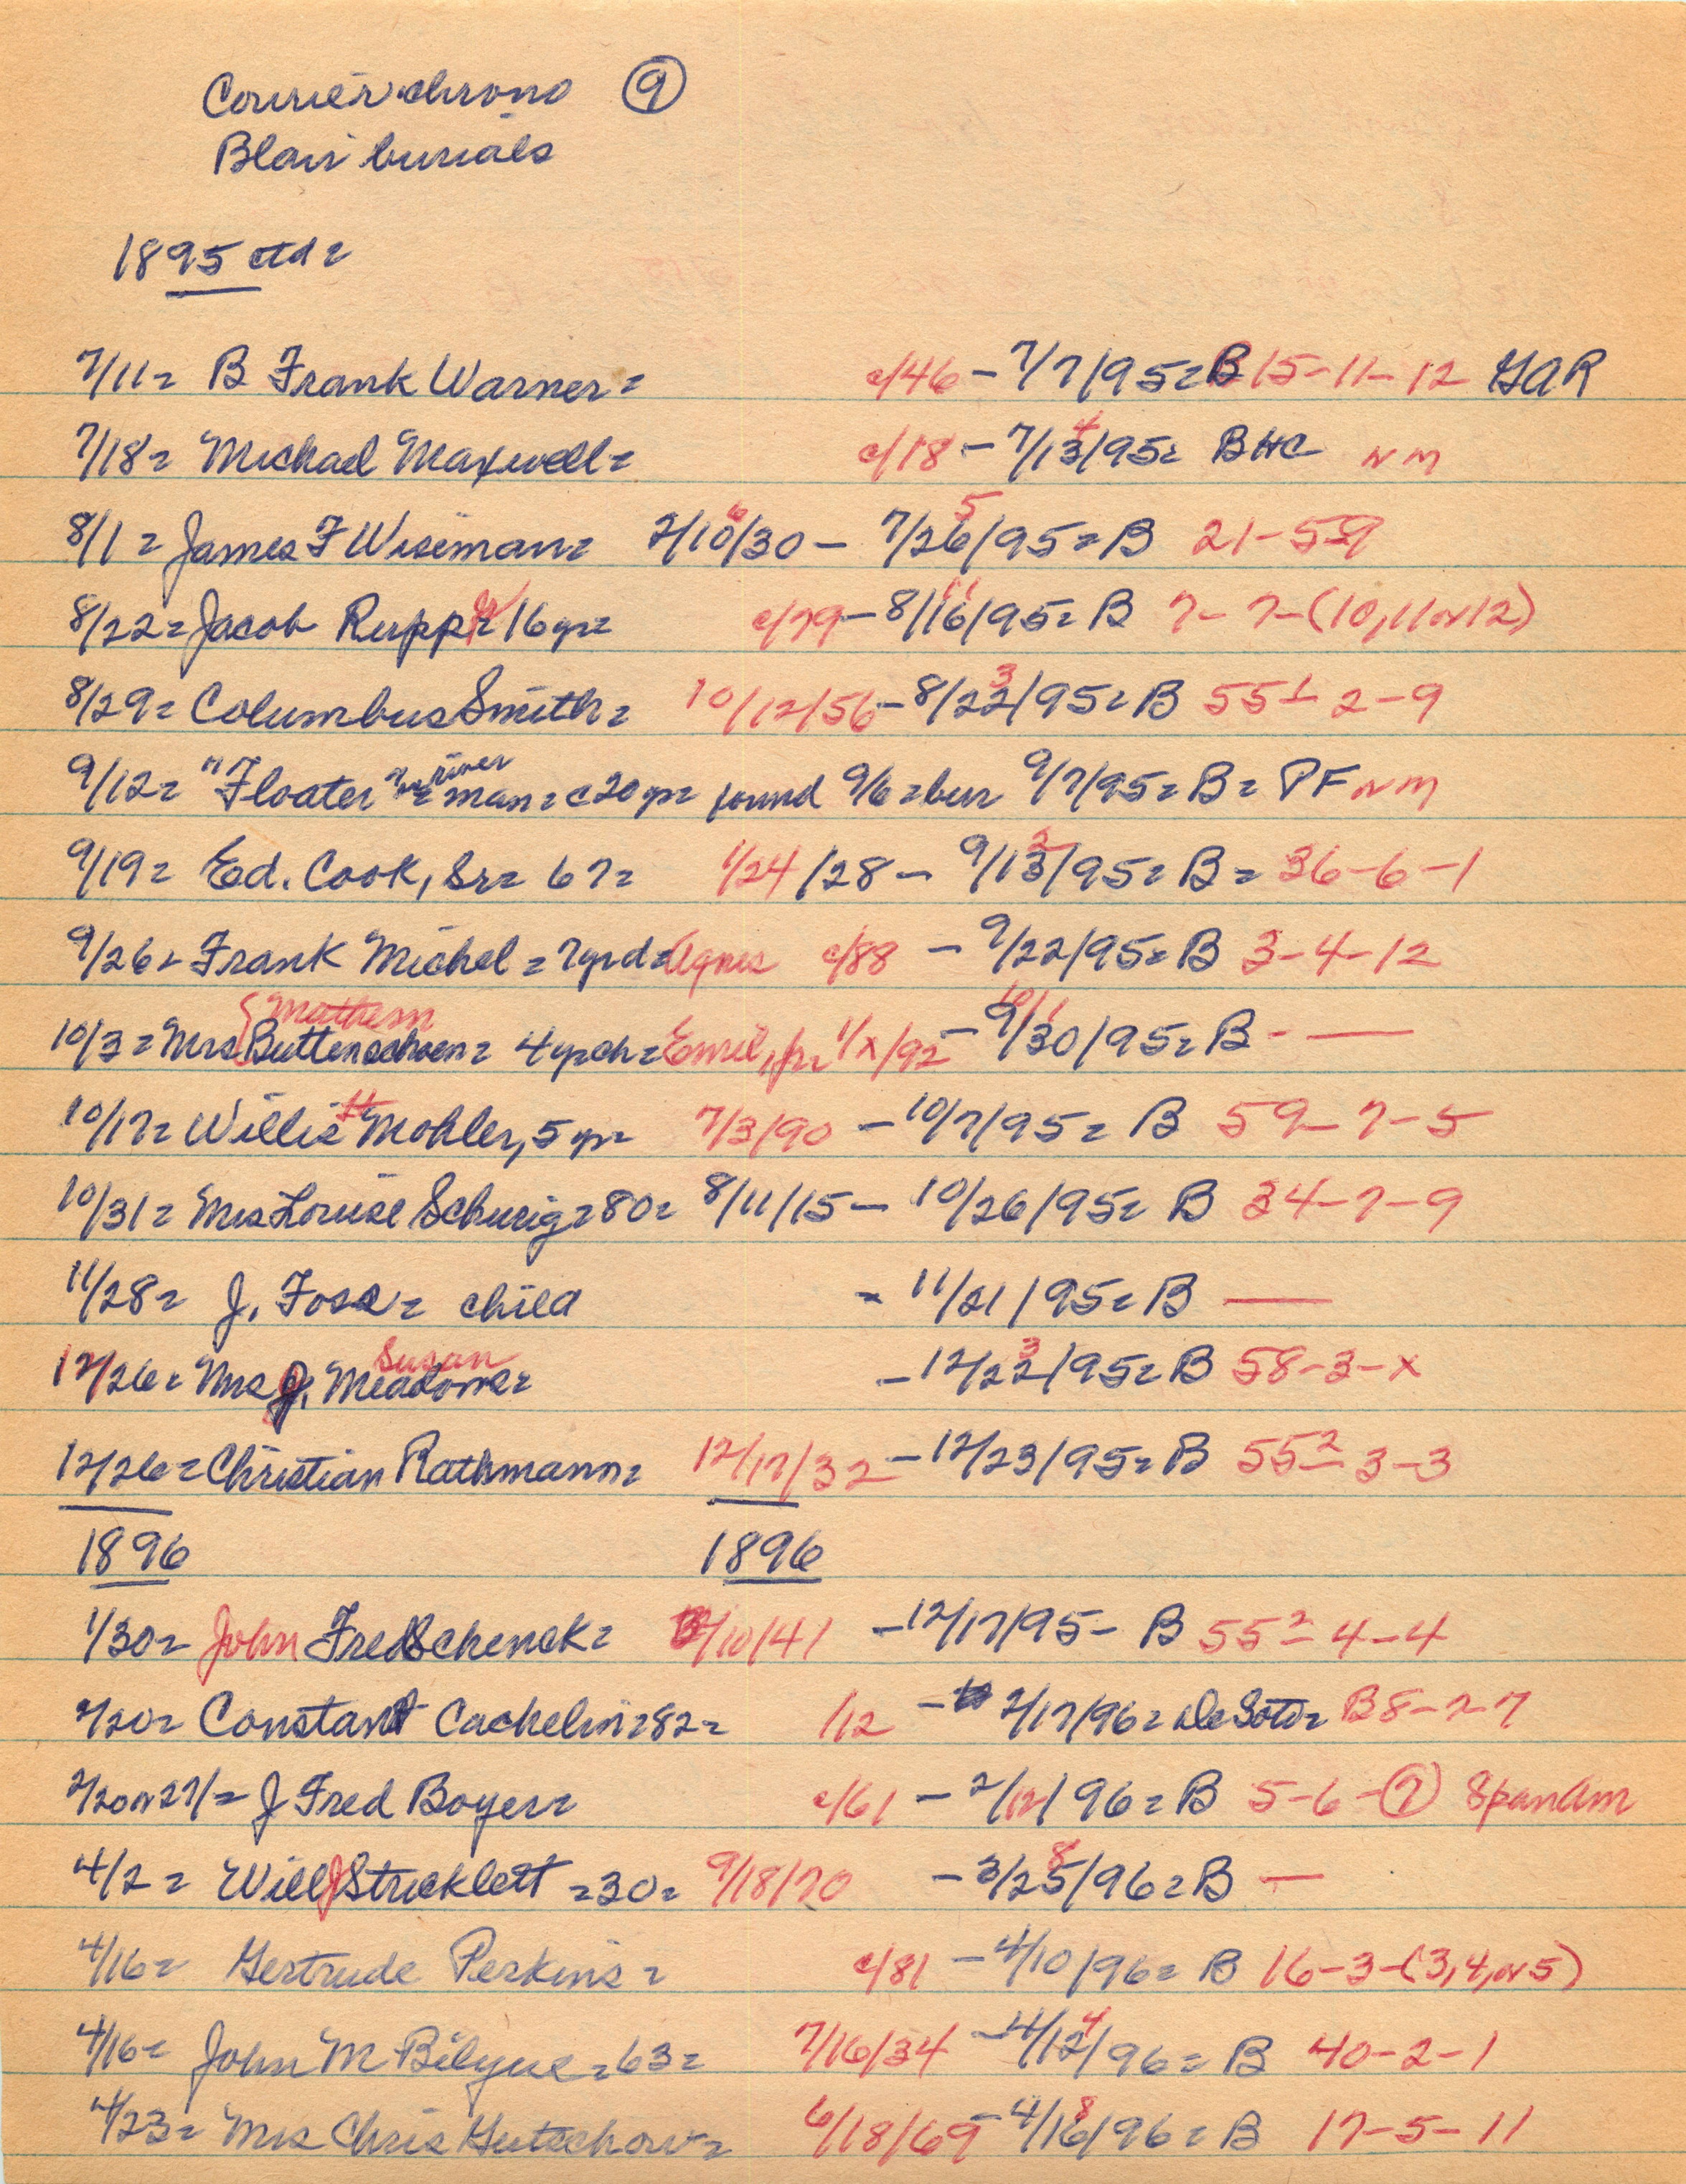 Courier chrono 9
Blair burials
1895 ctd=
7/11= B Frank Warner= c/46 - 7/7/95= B 15-11-12 GAR
7/18= Michael Maxwell= c/18 - 7/13/95= 4 BHC NM
8/1= James F Wiseman= 2/10/30 6 - 7/26/95= 5 B 21-5-9
8/22= Jacob Rupp= 16yr= c/79 - 8/16/95= 11 B 7-7-(10,11 or 12)
8/29= Columbus Smith= 10/12/56 - 8/22/95= 3 B 55¹-2-9
9/12= "Floater" river man= c20yr= found 9/6= bur 9/7/95= B= PF NM
9/19= Ed. Cook, Sr= 67= 1/24/28 - 9/13/95= 2 B= 36-6-1
9/26= Frank Michel= 7yr d= Agnes c/88 - 9/22/95= B 3-4-12
10/3= Mrs Buttenschoen= Mathem 4yr ch= Emil, Jr= 1/x/92 - 9/30/95= 10/1 B - —
10/17= Willis H Mohler, 5yr= 7/3/90 - 10/7/95= B 59-7-5
10/31= Mrs Louise Schurig= 80= 8/11/15 - 10/26/95= B 34-7-9
11/28= J. Foss= child - 11/21/95= B —
12/26= Mrs J. Meadows= Susan - 12/22/95= 3 B 58-3-x
12/26= Christian Rathmann= 12/17/32 - 12/23/95= B 55²-3-3
1896 1896
1/30= John Fred Schenck= /10/41 - 12/17/95 - B 55²-4-4
2/20= Constant Cachelin= 82= /12 - 2/17/96= DeSoto= B 8-2-7
2/20 or 27/= J Fred Boyer= c/61 - 2/12/96= B 5-6-(7) SpanAm
4/2= Will J Stricklett= 30= 9/18/70 - 3/25/96= 8 B —
4/16= Gertrude Perkins= c/81 - 4/10/96= B 16-3-(3,4,or 5)
4/16= John M Bilyue= 63= 7/16/34 - 4/12/96= 4 B 40-2-1
4/23= Mrs Chris Gutschow= 6/18/69 - 4/16/96= 8 B 17-5-11